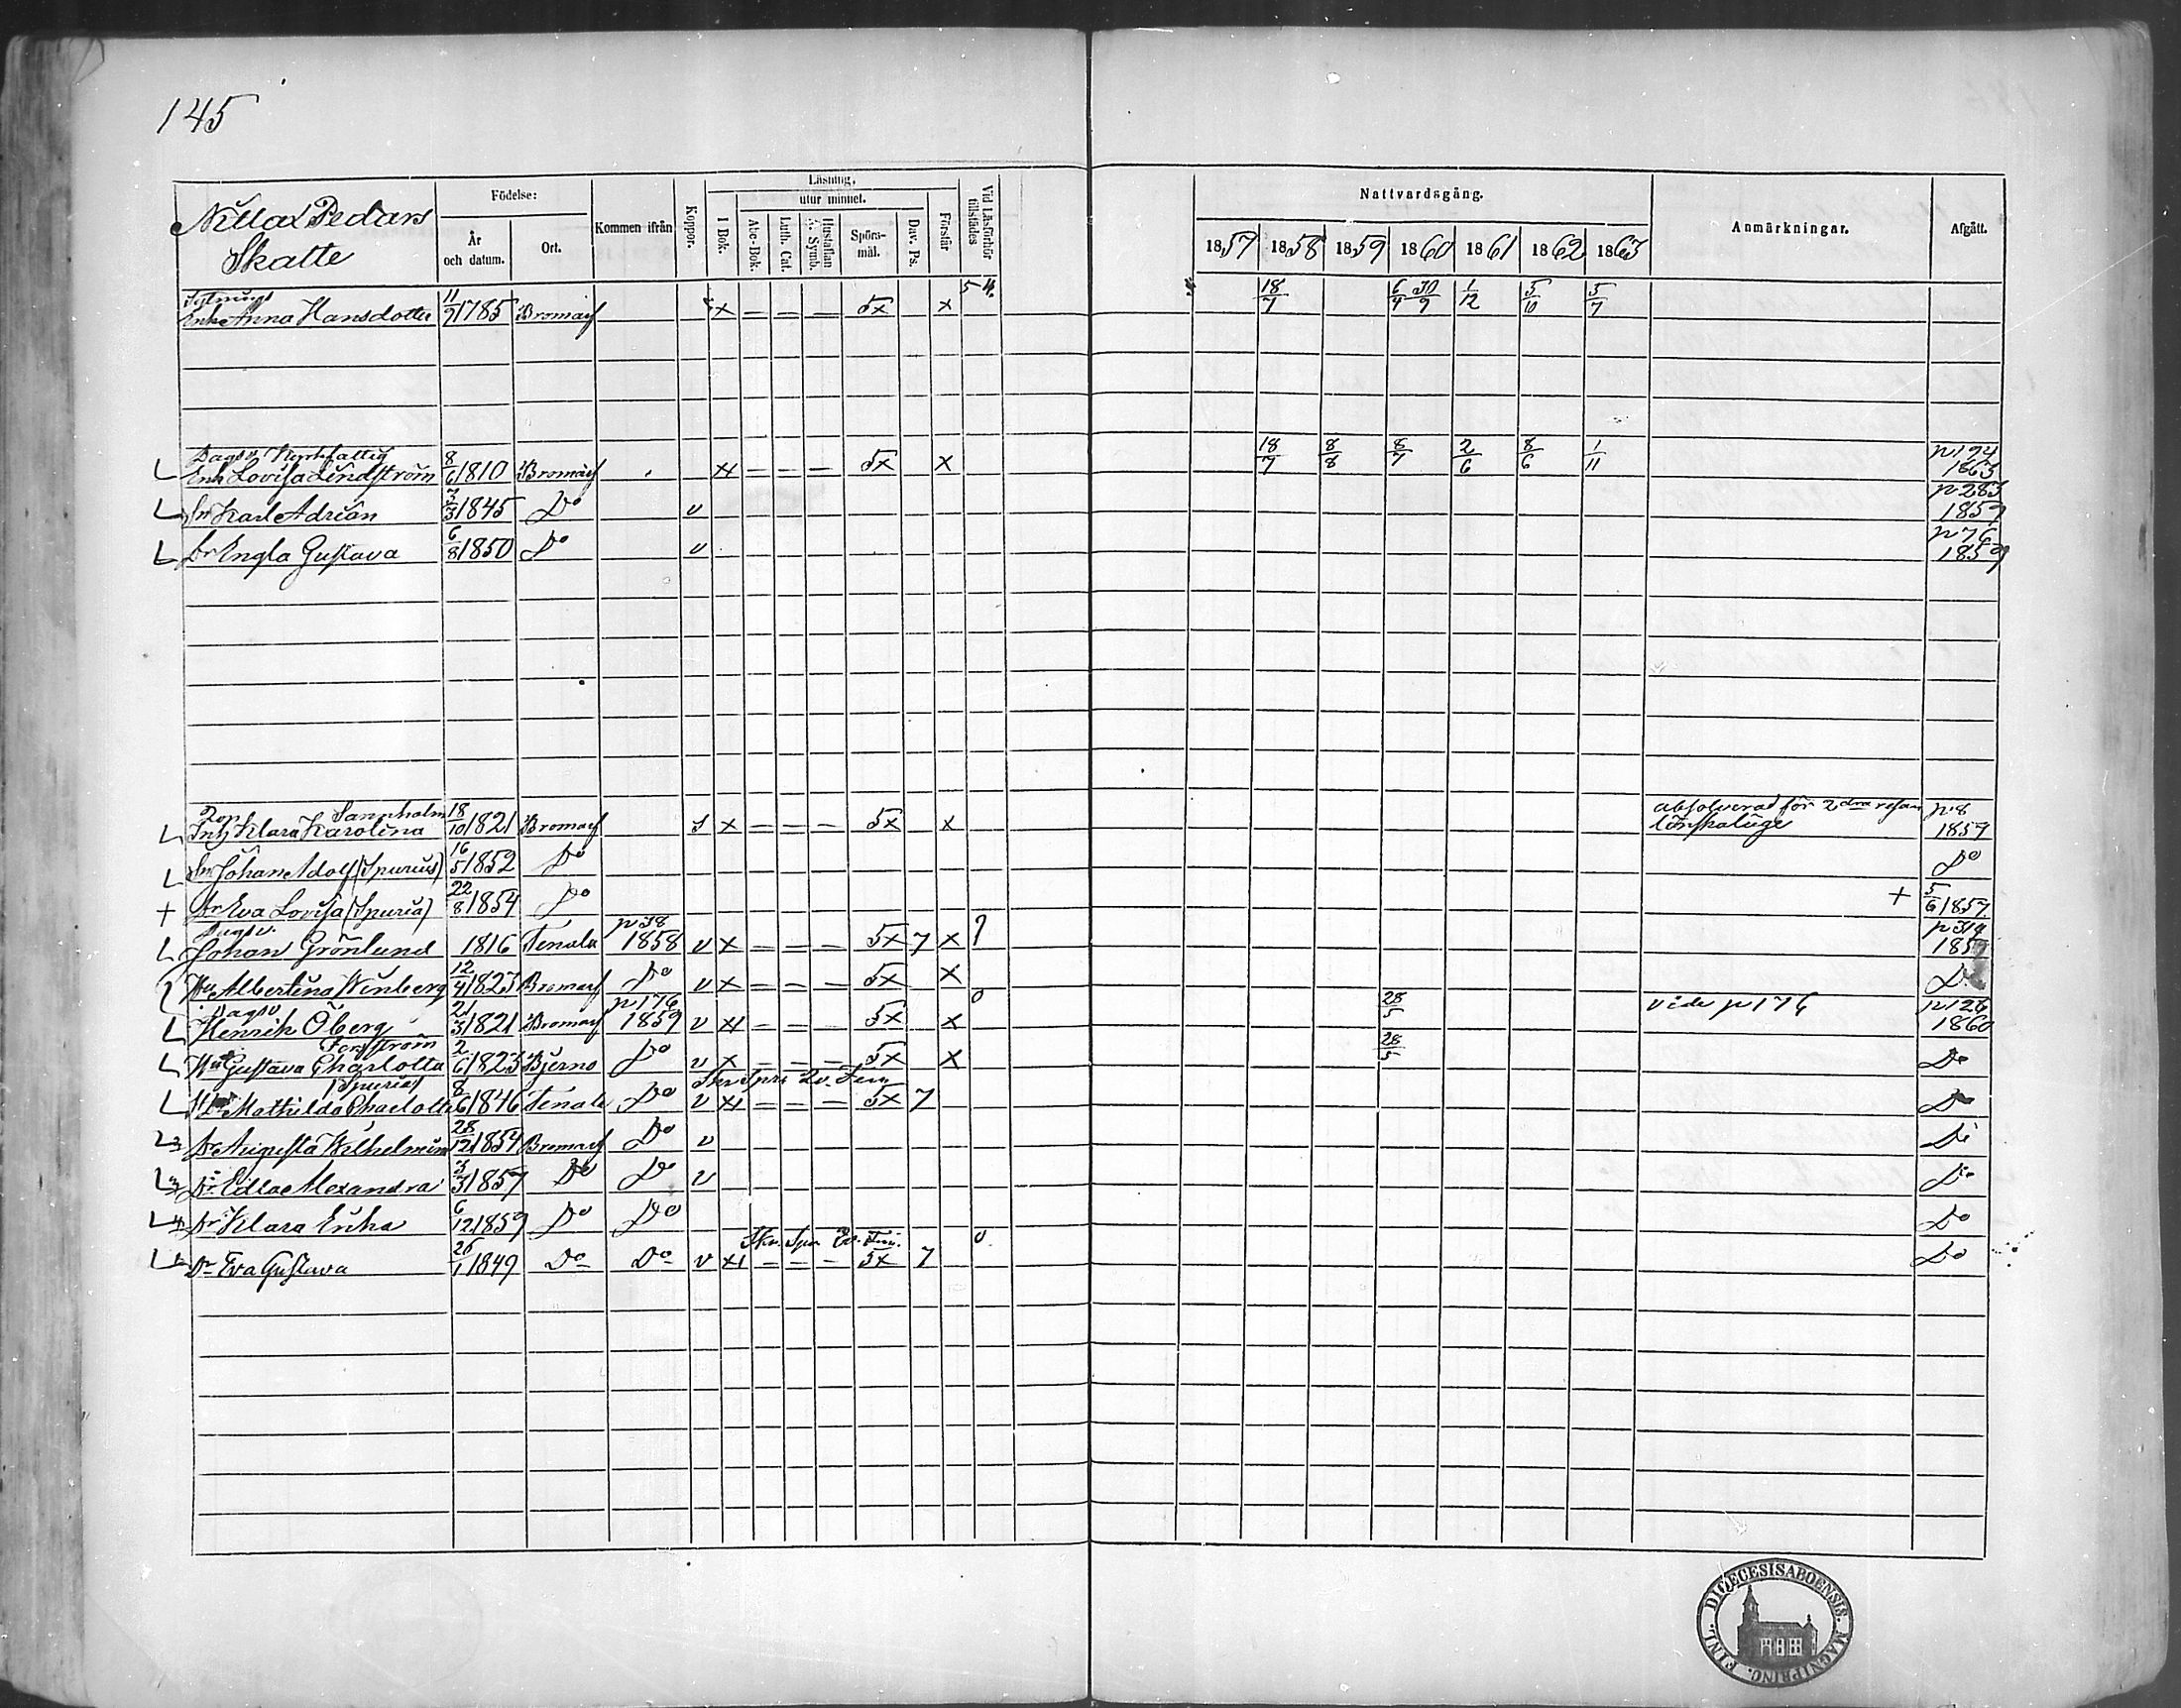 145
Nitlax Pedars
Skatte
Födelse:
År
och datum.
Ort.
Kommen ifrån
Koppor.
Läsning,
utur minnet.
I Bok.
Abc-Bok.
Luth. Cat.
Hustaflan
A. Symb.
Spörs-
mål.
Dav. Ps.
Förstår
Vid Läsförhör
tillstädes
Nattvardsgång.
1857 1858 1859 1860 1861 1862 1863
Anmärkningar.
Afgått.
5 4.
Enk. Anna Hansdotter 11/7 1785 Bromarf x – – – 5x x 18/7 6/4 30/9 1/12 5/10 5/7
Dagsv. Kyrkfattig
Enk Lovisa Lindström 8/6 1810 Bromarf x – – – 5x x 18/7 8/8 8/7 2/6 8/6 1/11 p 194 1863
Sn Karl Adrian 3/3 1845 Do v p 283 1857
Dr Engla Gustava 6/8 1850 Do v p 76 1859
Sannholm
Inh Klara Karolina 18/10 1821 Bromarf s x – – – 5x x absolverad för 2dra resan lönskaläge p 8 1857
Sn Johan Adolf (Spurius) 16/5 1852 Do Do
+ Dr Eva Lovisa (Spuria) 22/8 1854 Do + 5/6 1857
Dagsv.
Johan Grönlund 1816 Tenala p 38 1858 v x – – – 5x 7 x 9 p 314 1859
Hu Albertina Winberg 12/4 1823 Bromarf Do v x – – – 5x x Do
Dagsv
Henrik Öberg 21/3 1821 Bromarf p 176 1859 v x – – – 5x x 0 28/5 vide p 176 p 126 1860
Forsström
Hu Gustava Charlotta 2/6 1823 Bjerno Do v x – – – 5x x 28/5 Do
(Spuria)
Mathilda Charlotta 8/6 1846 Tenala Do v x – – – 5x 7 Do
Dr Augusta Wilhelmina 28/12 1854 Bromarf Do v Do
Dr Edla Alexandra 3/3 1857 Do Do v Do
Dr Klara Erika 6/12 1859 Do Do Do
Dr Eva Gustava 26/1 1849 Do Do v x – – – 5x 7 0 Do
FINL. DIOECESIS ABOENSIS. MAGNI PRINC.